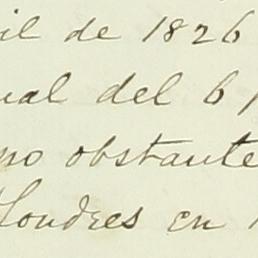 il de 1826
ual del 6
no obstante
Londres en